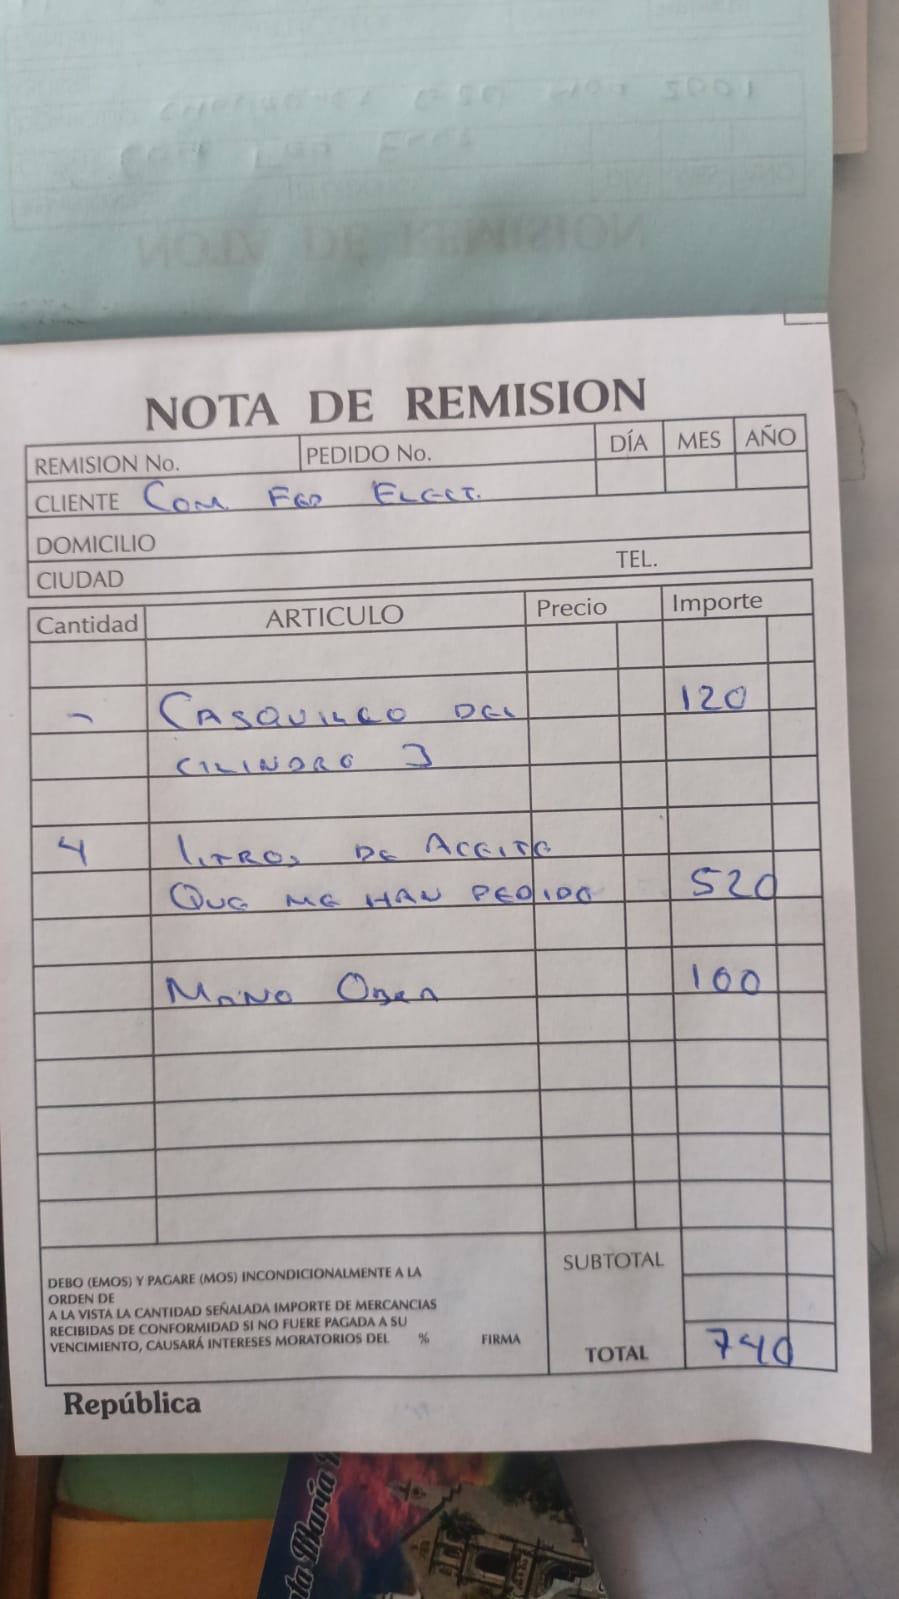 NOTA DE REMISION
REMISION No. PEDIDO No. DÍA MES AÑO
CLIENTE COM. FED ELECT.
DOMICILIO
CIUDAD TEL.
Cantidad ARTICULO Precio Importe
- CASQUILLO DEL 120
CILINDRO 3
4 LITROS DE ACEITE
QUE ME HAN PEDIDO 520
MANO OBRA 100
SUBTOTAL
DEBO (EMOS) Y PAGARE (MOS) INCONDICIONALMENTE A LA
ORDEN DE
A LA VISTA LA CANTIDAD SEÑALADA IMPORTE DE MERCANCIAS
RECIBIDAS DE CONFORMIDAD SI NO FUERE PAGADA A SU
VENCIMIENTO, CAUSARÁ INTERESES MORATORIOS DEL % FIRMA
TOTAL 740
República
María